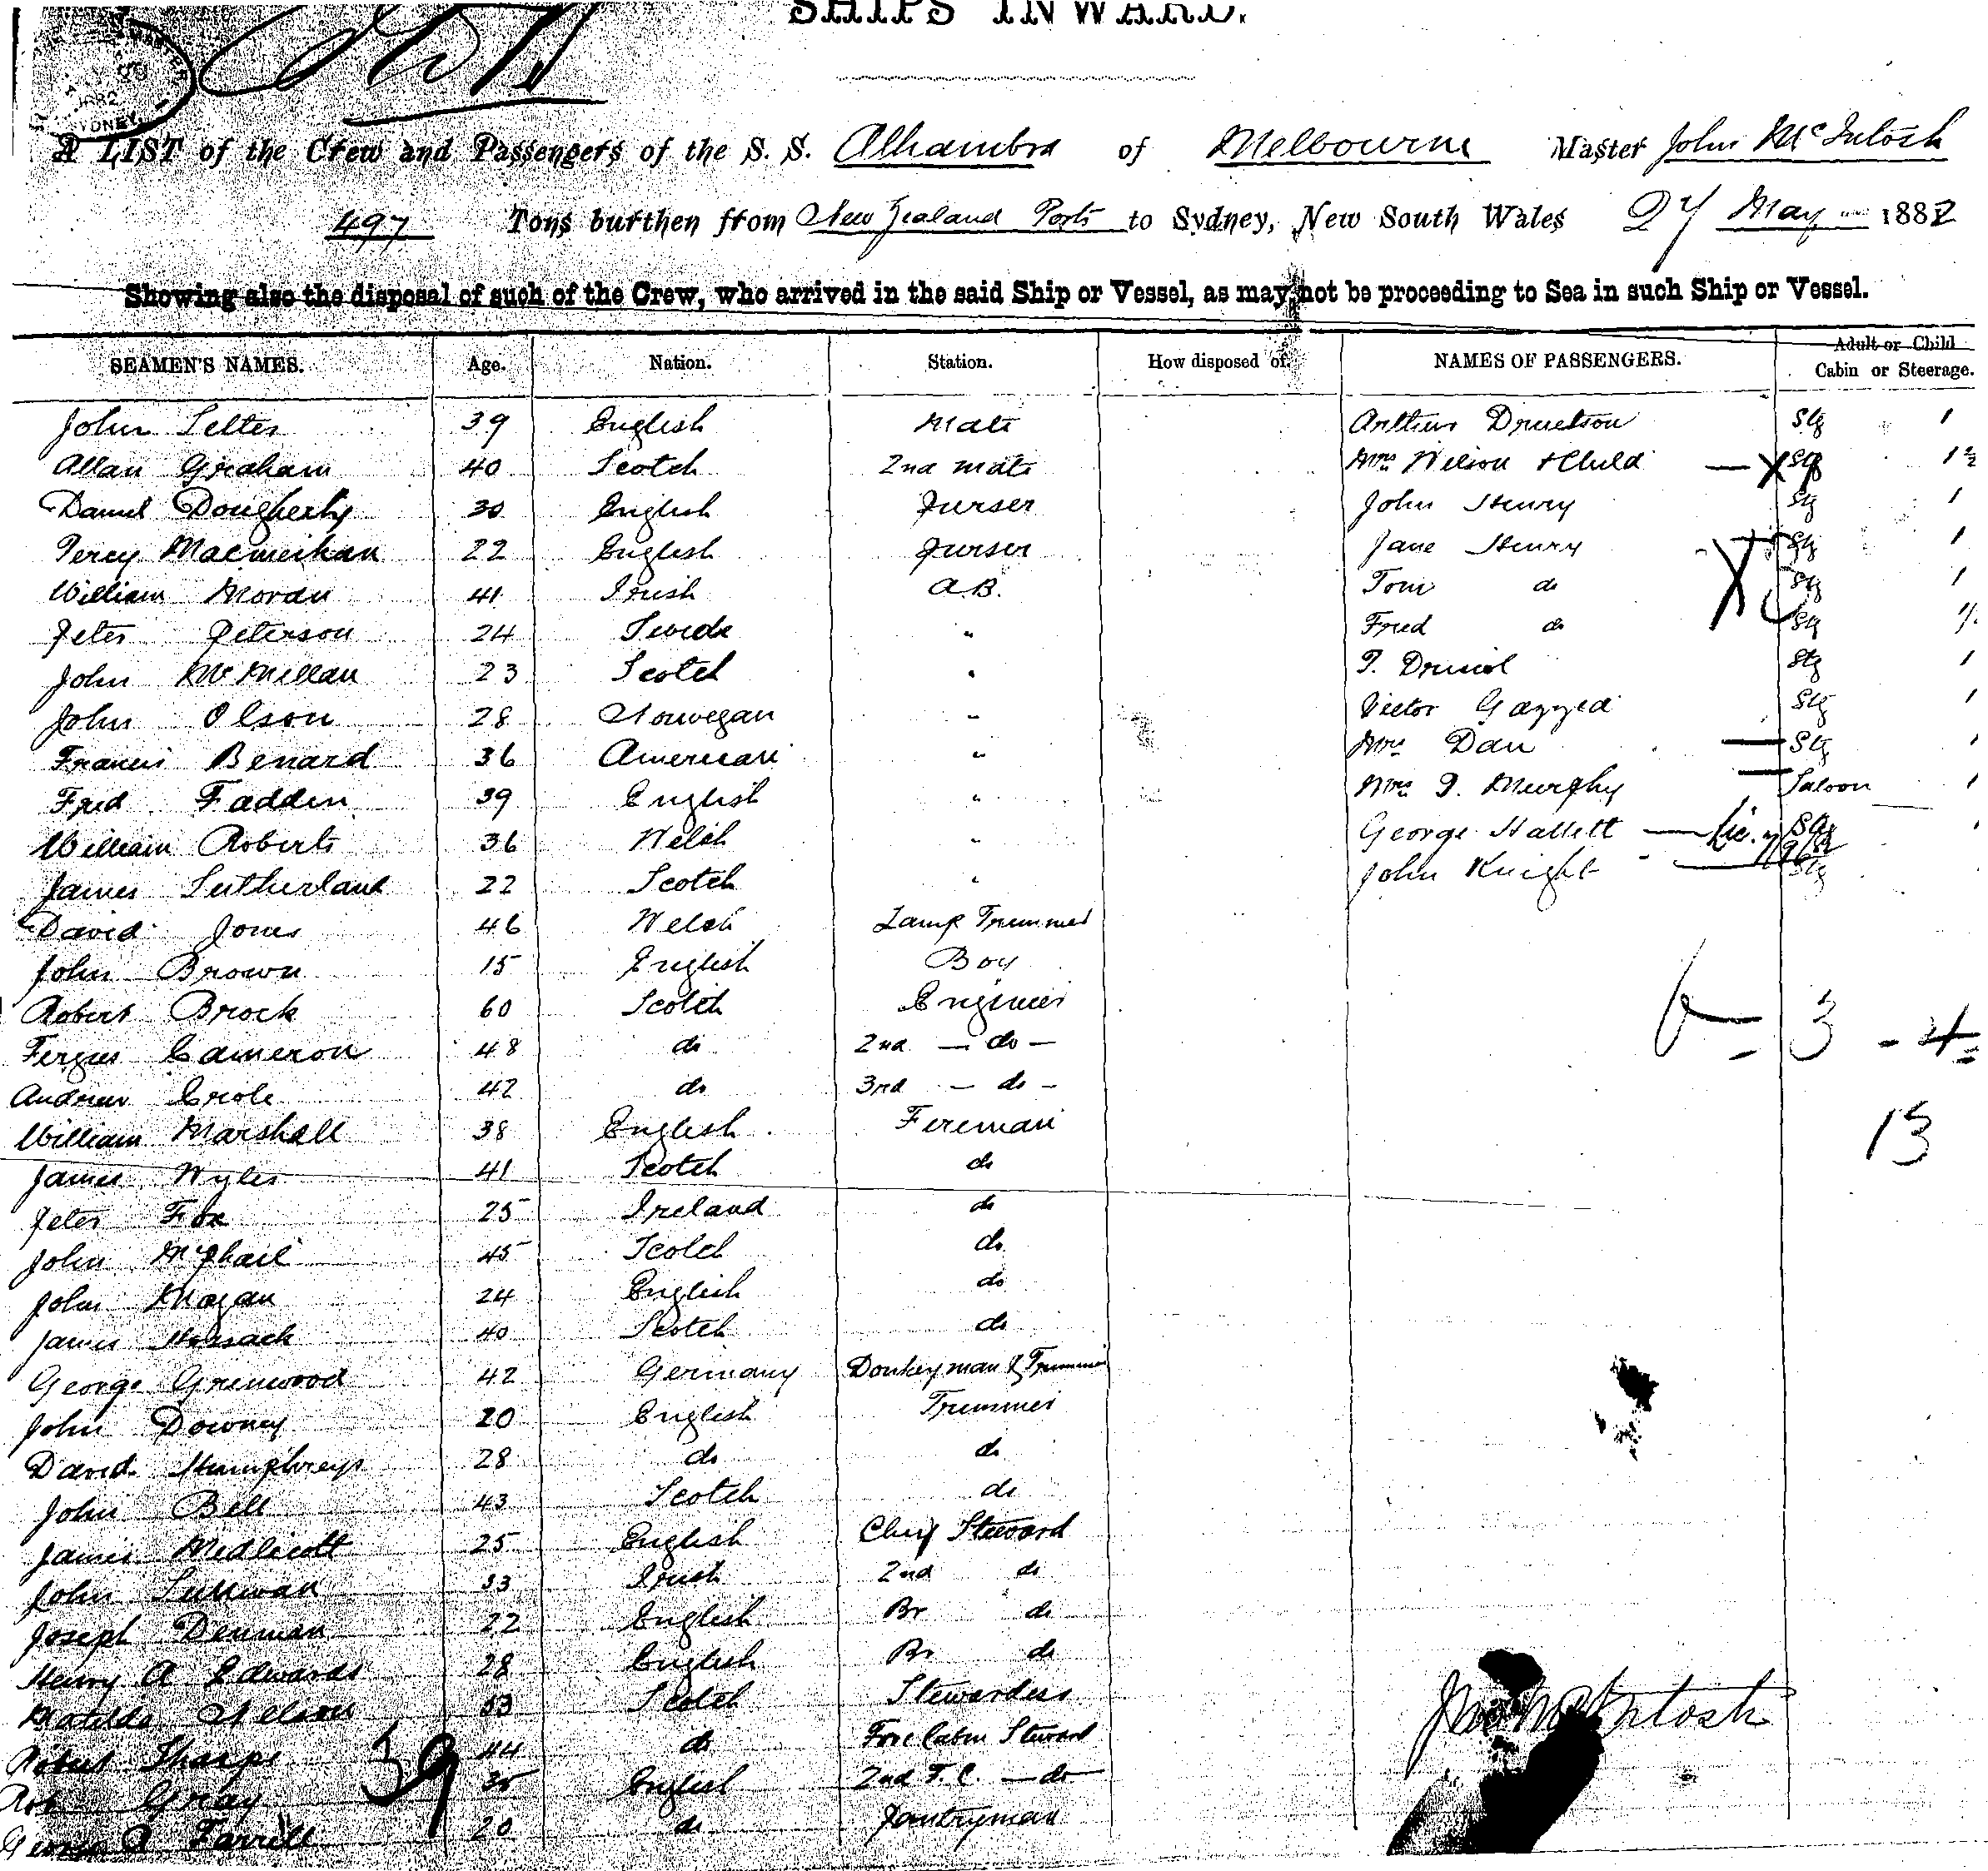 SHIPS INWARD.
1882
SYDNEY
A LIST of the Crew and Passengers of the S. S. Alhambra of Melbourne Master John McIntosh
497 Tons burthen from New Zealand Ports to Sydney, New South Wales 27 May 1882
Showing also the disposal of such of the Crew, who arrived in the said Ship or Vessel, as may not be proceeding to Sea in such Ship or Vessel.
SEAMEN'S NAMES. Age. Nation. Station. How disposed of. NAMES OF PASSENGERS. Adult or Child Cabin or Steerage.
John Selter 39 English Mate Arthur Stg 1
Allan Graham 40 Scotch 2nd mate Mrs Wilson & Child Stg 1½
Daniel Dougherty 30 English Purser John Henry Stg 1
Percy Macmeikan 22 English Purser Jane Henry Stg 1
William Moran 41 Irish A.B. Tom do Stg 1
Peter Peterson 24 Swede " Fred do Stg
John McMillan 23 Scotch " Stg 1
John Olson 28 Norwegan " Victor Stg 1
Francis Benard 36 American " Mrs Dan Stg
Fred Fadden 39 English " Mrs P. Murphy Saloon
William Roberts 36 Welsh " George Hallett Stg
James Sutherland 22 Scotch " John Knight Stg
David Jones 46 Welsh Lamp Trimmer
John Brown 15 English Boy
Robert Brock 60 Scotch Engineer
6 - 3 - 4
Fergus Cameron 48 do 2nd - do -
Andrew Crole 42 do 3rd - do -
William Marshall 38 English Fireman
13
James Wyles 41 Scotch do
Peter Fox 25 Ireland do
John McPhail 45 Scotch do
John Magan 24 English do
James Hossack 40 Scotch do
George Grenwood 42 Germany Donkeyman & Trimmer
John Downey 20 English Trimmer
David Humphreys 28 do do
John Bell 43 Scotch do
James Medlicott 25 English Chief Steward
John Sullivan 33 Irish 2nd do
Joseph Denman 22 English Br do
Henry A Edwards 28 English Br do
Matilda Nelson 53 Scotch Stewardess
Jno McIntosh
Robert Sharpe 44 do Fore Cabin Steward
39
Rob Gray 35 English 2nd F. C. - do
George A Farrell 20 do Pantryman